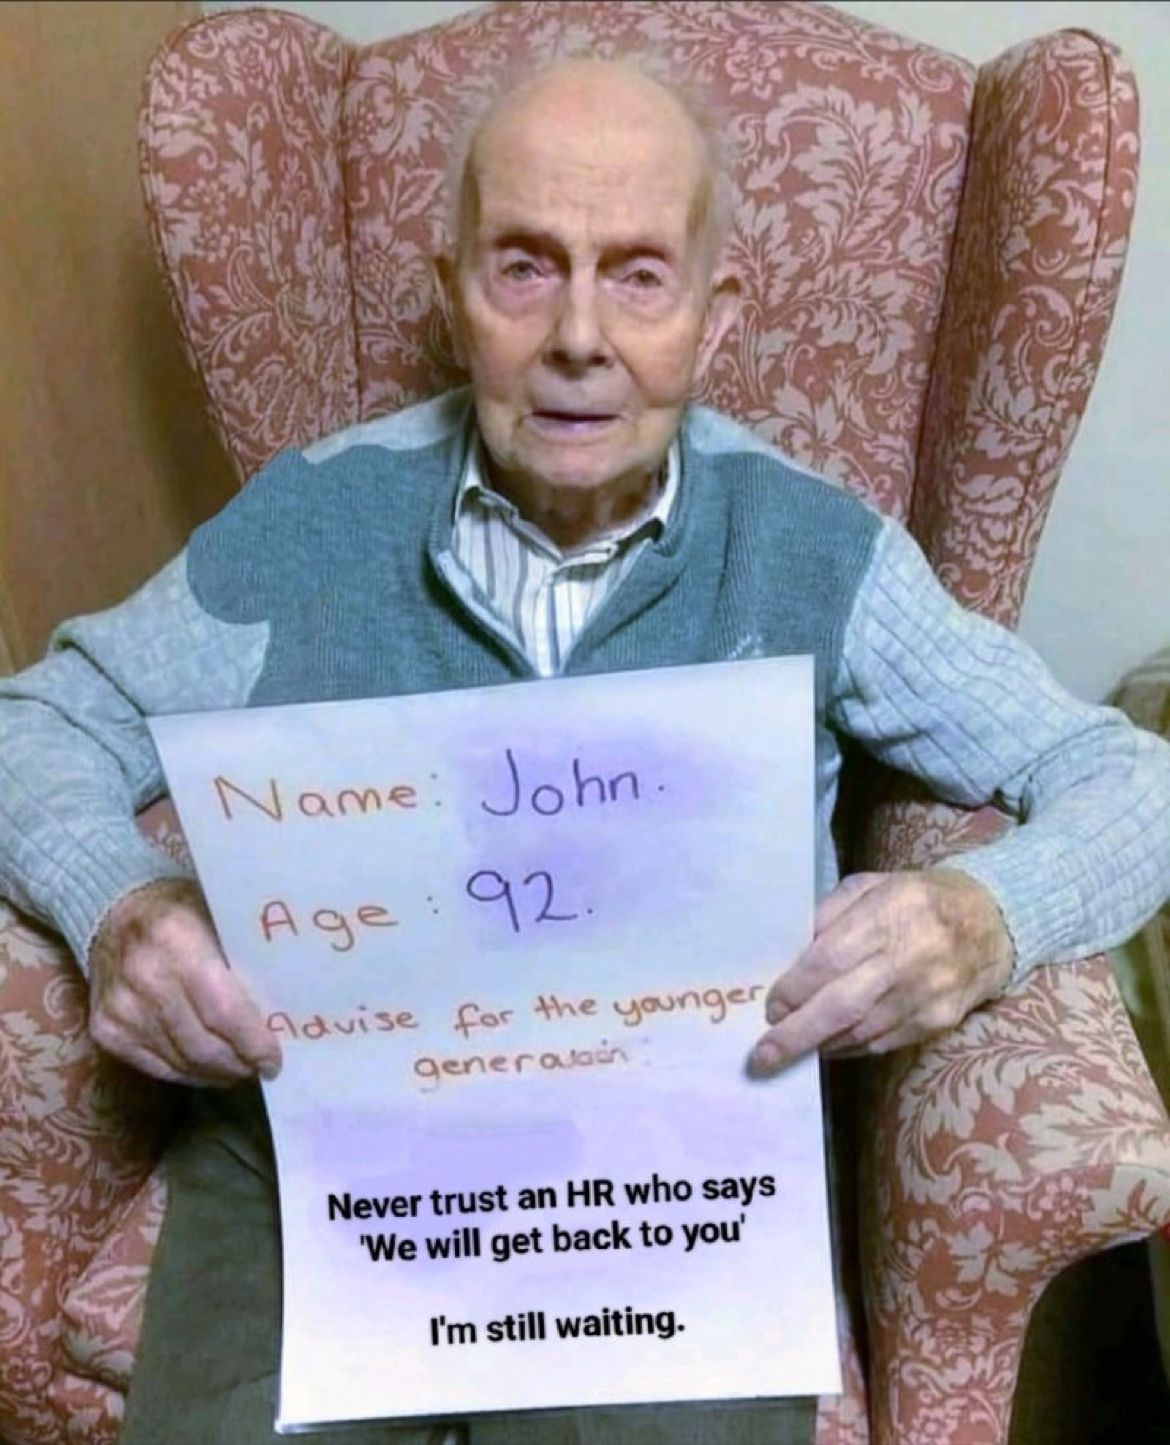 Name: John.
Age: 92.
Advise for the younger
generation:
Never trust an HR who says
'We will get back to you'
I'm still waiting.